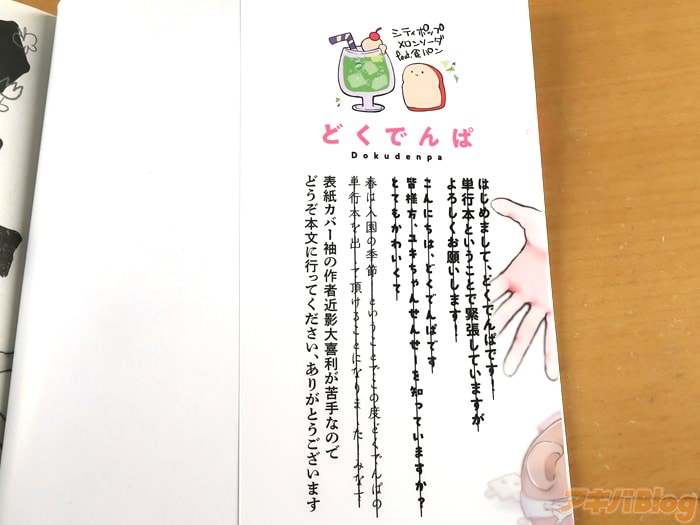 シティポップ
メロンソーダ
feat.食パン
どくでんぱ
Dokudenpa
はじめまして、どくでんぱです！
単行本ということで緊張していますが
よろしくお願いします！
こんにちは、どくでんぱです
皆様方、ユキちゃんせんせーを知っていますか？
とてもかわいくて
春は入園の季節ということでこの度どくでんぱの
単行本を出して頂けることになりました みなで
表紙カバー袖の作者近影大喜利が苦手なので
どうぞ本文に行ってください、ありがとうございます
アキバBlog